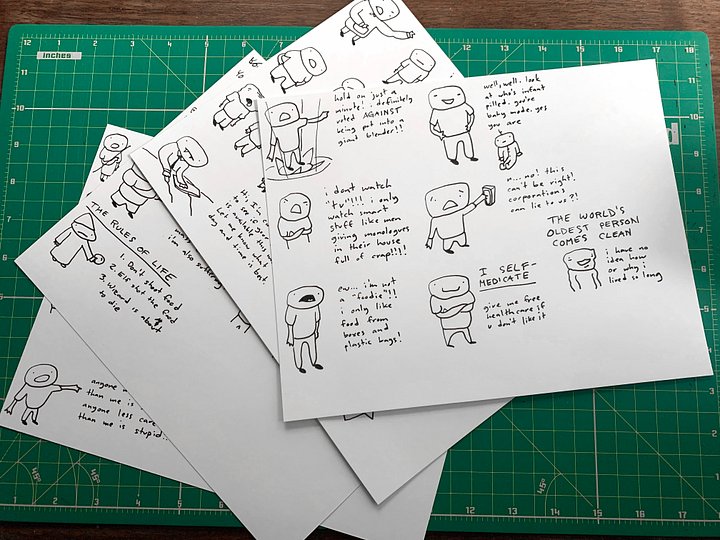 inches
hold on just a
minute! i definitely
voted AGAINST
being put into a
giant blender!!
well, well. look
at who's infant
pilled. you're
baby mode. yes
you are
i dont watch
"tv"!!! i only
watch smart
stuff like men
giving monologues
in their house
full of crap!!!
n... no! this
can't be right!
corporations
can lie to us?!
THE WORLD'S
OLDEST PERSON
COMES CLEAN
i have no
idea how
or why i
lived so long
ew... i'm not
a "foodie"!!
i only like
food from
boxes and
plastic bags!
I SELF-
MEDICATE
give me free
healthcare if
u don't like it
THE RULES OF LIFE
1. Don't shoot food
2. Eat the food
3. Wizard is about
to die
i'm also suffering
Hi, I
to see
available this
Let me know what
day and time is best
anyone
than me is
anyone less
than me is stupid..